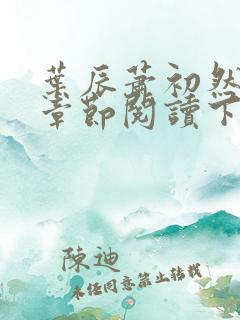 葉辰蕭初然
章節閱讀下
陳迪
未经同意禁止转载